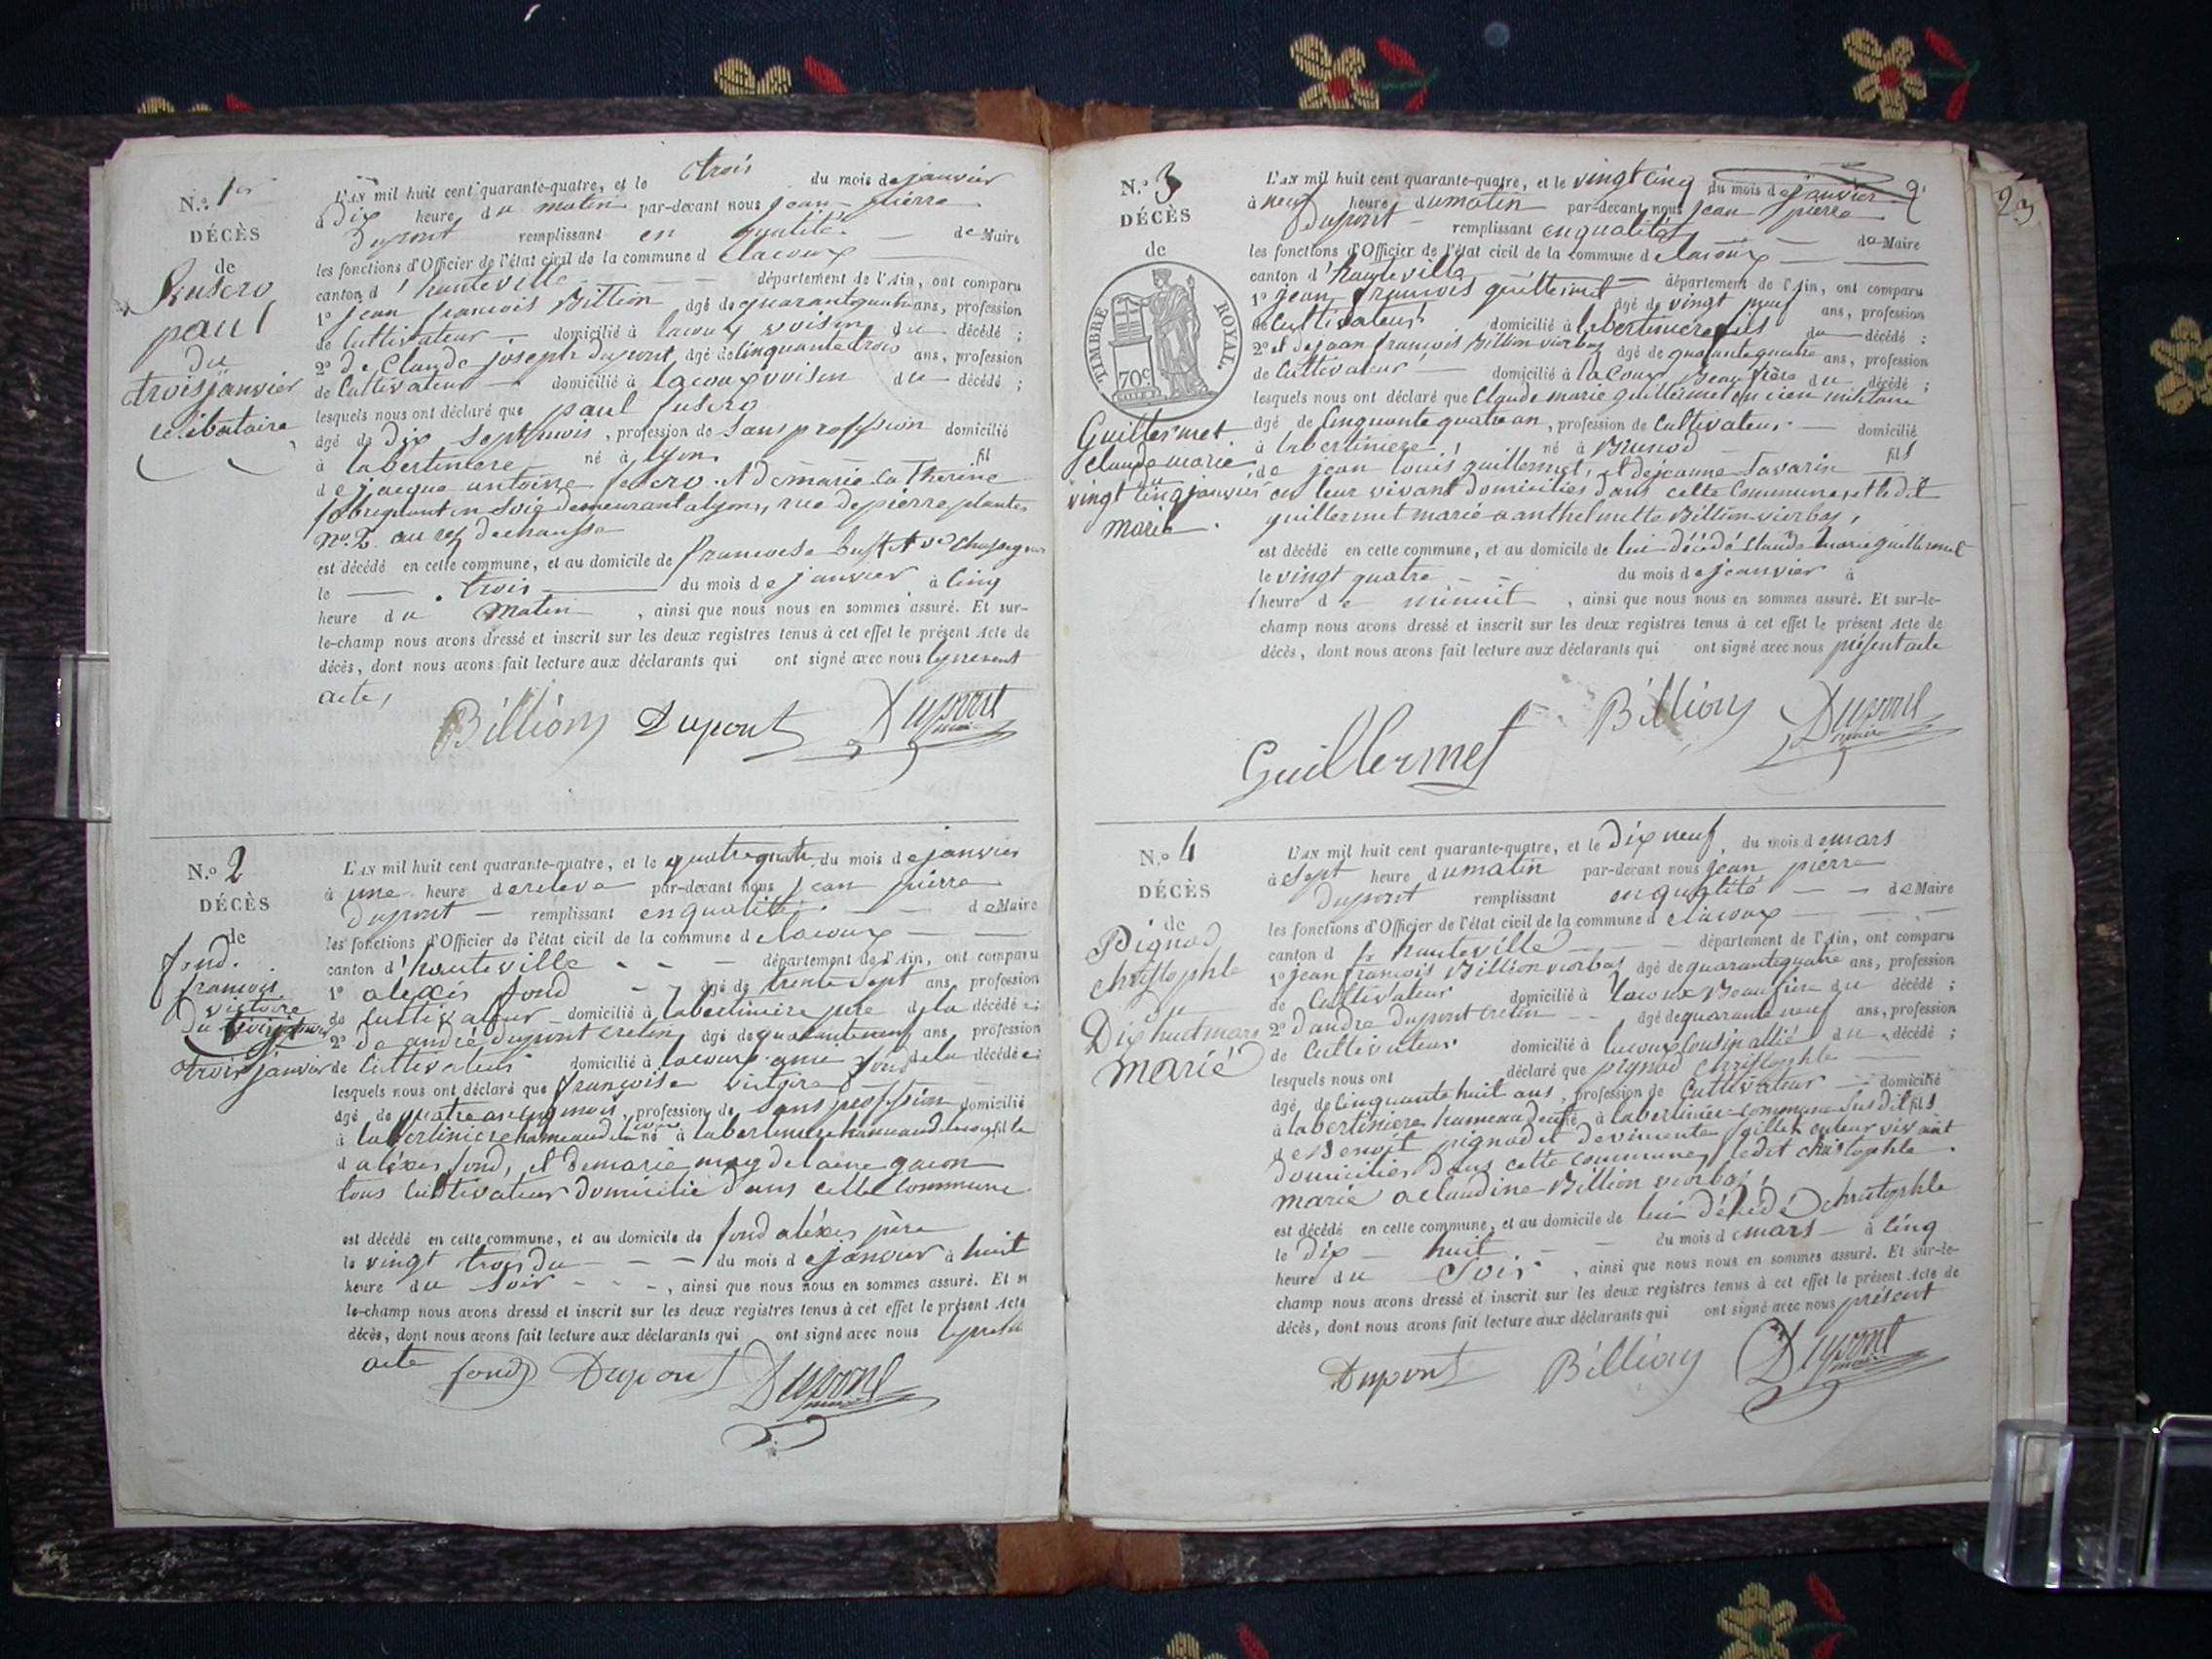 N.o 1er
DÉCÈS
de
paul
du
trois janvier
celibataire
L'AN mil huit cent quarante-quatre, et le trois du mois de janvier
à Dix heure du matin par-devant nous jean pierre
Dupont remplissant en qualité de Maire
les fonctions d'Officier de l'état civil de la commune d elacoux
canton d'hauteville département de l'Ain, ont comparu
1o jean francois Billion âgé de quarantequatre ans, profession
de Cultivateur domicilié à lacoux voisin du décédé ;
2o de Claude joseph Dupont âgé de Cinquantetrois ans, profession
de Cultivateur domicilié à lacoux voisin du décédé ;
lesquels nous ont déclaré que paul
âgé de Dix Sept mois, profession de Sans profession domicilié
à labertiniere né à lyon fil
de jacque antoine et de marie Catherine
fabriquant en Soie demeurant alyon, rue de pierre plantes
no. 2 au rez de chausse
est décédé en cette commune, et au domicile de francoise
le trois du mois de janvier à Cinq
heure du Matin, ainsi que nous nous en sommes assuré. Et sur-
le-champ nous avons dressé et inscrit sur les deux registres tenus à cet effet le présent Acte de
décès, dont nous avons fait lecture aux déclarants qui ont signé avec nous le present
acte,
Billion Dupont Dupont
maire
N.o 2
DÉCÈS
de
fond.
francois
victoire
Du
trois janvier
L'AN mil huit cent quarante-quatre, et le du mois de janvier
à une heure de releve par-devant nous jean pierre
Dupont remplissant en qualité de Maire
les fonctions d'Officier de l'état civil de la commune d elacoux
canton d'hauteville département de l'Ain, ont comparu
1o alexis fond âgé de trente Sept ans profession
de Cultivateur domicilié à labertiniere pere de la décédé e;
2o de andré Dupont cretin âgé de ans, profession
de Cultivateur domicilié à lacoux amie de la décédé e;
lesquels nous ont déclaré que françoise victoire fond
âgé de quatre an cinq mois, profession de Sans profession domicilié
à labertiniere hameaud né à labertiniere hameaud fil le
d alexis fond, et de marie magdelaine gacon
tous Cultivateur domicilié dans cette commune
est décédé en cette commune, et au domicile de fond alexis père
le vingt trois du du mois de janvier à huit
heure du Soir, ainsi que nous nous en sommes assuré. Et
le-champ nous avons dressé et inscrit sur les deux registres tenus à cet effet le présent Acte
décès, dont nous avons fait lecture aux déclarants qui ont signé avec nous le
acte fond Dupont Dupont
maire
23
N.o 3
DÉCÈS
de
TIMBRE ROYAL.
70c
Guillermet
Claude marie
du
vingt cinq janvier
marié
L'AN mil huit cent quarante-quatre, et le vingt cinq du mois de janvier
à neuf heure du matin par-devant nous jean pierre
Dupont remplissant en qualité de Maire
les fonctions d'Officier de l'état civil de la commune d elacoux
canton d'hauteville département de l'Ain, ont comparu
1o jean francois guillermet âgé de vingt neuf ans, profession
de Cultivateur domicilié à labertiniere fils du décédé ;
2o et de jean francois Billion viorbas âgé de quarantequatre ans, profession
de Cultivateur domicilié à lacoux Beau frère du décédé ;
lesquels nous ont déclaré que Claude marie guillermet ancien militaire
âgé de Cinquante quatre an, profession de Cultivateur domicilié
à labertiniere né à Brenod fils
de jean louis guillermet, et de jeanne Savarin
en leur vivant domiciliés dans cette Commune, et le dit
guillermet marié a anthelmette Billion viorbas,
est décédé en cette commune, et au domicile de lui décédé Claude marie guillermet
le vingt quatre du mois de janvier à
heure de minuit, ainsi que nous nous en sommes assuré. Et sur-le-
champ nous avons dressé et inscrit sur les deux registres tenus à cet effet le présent Acte de
décès, dont nous avons fait lecture aux déclarants qui ont signé avec nous présent acte
Guillermet Billion Dupont
maire
N.o 4
DÉCÈS
de
Pignod
christophle
du
Dix huit mars
marié
L'AN mil huit cent quarante-quatre, et le Dix neuf du mois de mars
à Sept heure du matin par-devant nous jean pierre
Dupont remplissant en qualité de Maire
les fonctions d'Officier de l'état civil de la commune d elacoux
canton d hauteville département de l'Ain, ont comparu
1o jean francois Billion viorbas âgé de quarantequatre ans, profession
de Cultivateur domicilié à lacoux Beaufrere du décédé ;
2o d andre Dupont cretin âgé de quarante neuf ans, profession
de Cultivateur domicilié à lacoux Cousin allié du décédé ;
lesquels nous ont déclaré que pignod christophle
âgé de Cinquante huit ans, profession de Cultivateur domicilié
à labertiniere hameaud né à labertiniere commune Susdit fils
de Benoit pignod et de gillet en leur vivant
Domiciliés Dans cette commune, ledit christophle
marié a claudine Billion viorbas,
est décédé en cette commune, et au domicile de lui Décédé christophle
le Dix huit du mois de mars à Cinq
heure du Soir, ainsi que nous nous en sommes assuré. Et sur-le-
champ nous avons dressé et inscrit sur les deux registres tenus à cet effet le présent Acte de
décès, dont nous avons fait lecture aux déclarants qui ont signé avec nous présent
Dupont Billion Dupont
maire